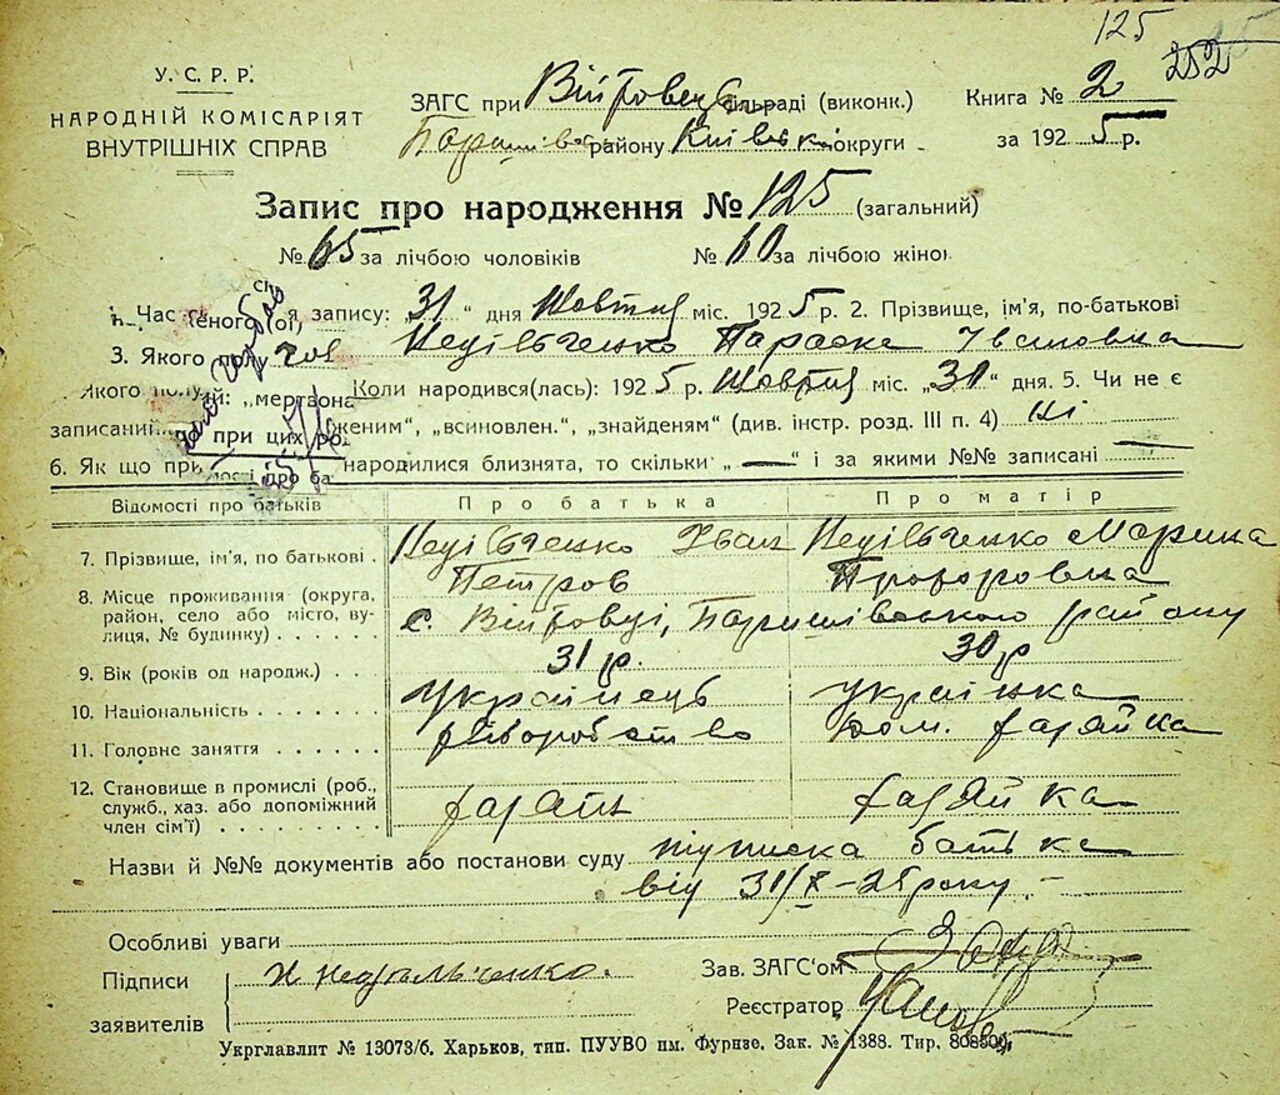 125
252
У. С. Р. Р.
НАРОДНІЙ КОМІСАРІЯТ
ВНУТРІШНІХ СПРАВ
ЗАГС при Війтовец сільраді (виконк.)
Баришівсько району Київсько округи
Книга № 2
за 1925 р.
Запис про народження № 125 (загальний)
№ 65 за лічбою чоловіків № 60 за лічбою жіно
1. Час запису: „31“ дня Жовтня міс. 1925 р. 2. Прізвище, ім'я, по-батькові
Недільченко Параска Івановна
3. Якого чол
Коли народився(лась): 1925 р. Жовтня міс. „31“ дня. 5. Чи не є
записаний женим“, „всиновлен.“, „знайденям“ (див. інстр. розд. III п. 4) ні
6. Як що при народилися близнята, то скільки „—“ і за якими №№ записані —
Відомості про батьків Про батька Про матір
7. Прізвище, ім'я, по батькові . Недільченко Іван Недільченко Марина
Петров Прохоровна
8. Місце проживання (округа, район, село або місто, вулиця, № будинку) с. Війтовці, Баришівського району
9. Вік (років од народж.) 31 р. 30 р
10. Національність українець українка
11. Головне заняття рільоробство дом. хазяйка
12. Становище в промислі (роб., служб., хаз. або допоміжний член сім'ї) хазяїн хазяйка
Назви й №№ документів або постанови суду підписка батька
від 31/X – 25 року –
Особливі уваги
Підписи
заявителів
И Недильченко.
Зав. ЗАГС'ом
Реєстратор
Укрглавлит № 13073/6. Харьков, тип. ПУУВО им. Фрунзе. Зак. № 1388. Тир. 808500.